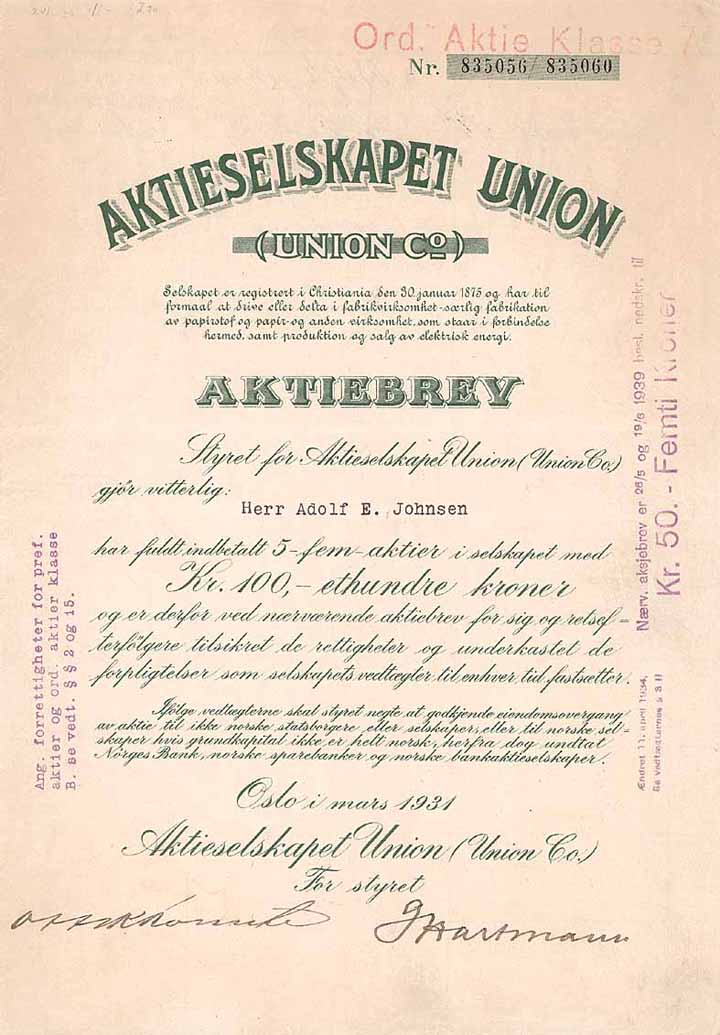 Ord. Aktie Klasse A
Nr. 835056/835060
AKTIESELSKAPET UNION
(UNION Cº)
Selskapet er registrert i Christiania den 30 januar 1875 og har til
formaal at drive eller delta i fabrikvirksomhet særlig fabrikation
av papirstof og papir og anden virksomhet, som staar i forbindelse
hermed, samt produktion og salg av elektrisk energi.
AKTIEBREV
Styret for Aktieselskapet Union (Union Co)
gjör vitterlig:
Herr Adolf E. Johnsen
har fuldt indbetalt 5-fem-aktier i selskapet med
Kr. 100,- ethundre kroner
og er derfor ved nærværende aktiebrev for sig og retsef=
terfölgere tilsikret de rettigheter og underkastet de
forpligtelser som selskapets vedtægter til enhver tid fastsætter.
Ifölge vedtægterne skal styret negte at godkjende eiendomsovergang
av aktie til ikke norske statsborgere eller selskaper, eller til norske sel=
skaper hvis grundkapital ikke er helt norsk, herfra dog undtat
Nörges Bank, norske sparebanker og norske bankaktieselskaper.
Oslo i mars 1931
Aktieselskapet Union (Union Co.)
For styret
Hartmann
Ang. forrettigheter for pref.
aktier og ord. aktier klasse
B. se vedt. § § 2 og 15.
Nærv. aksjebrev er 26/5 og 19/6 1939 besl. nedskr. til
Kr. 50.- Femti Kroner
Ændret 11. april 1934,
Se Vedtægternes § 3 II